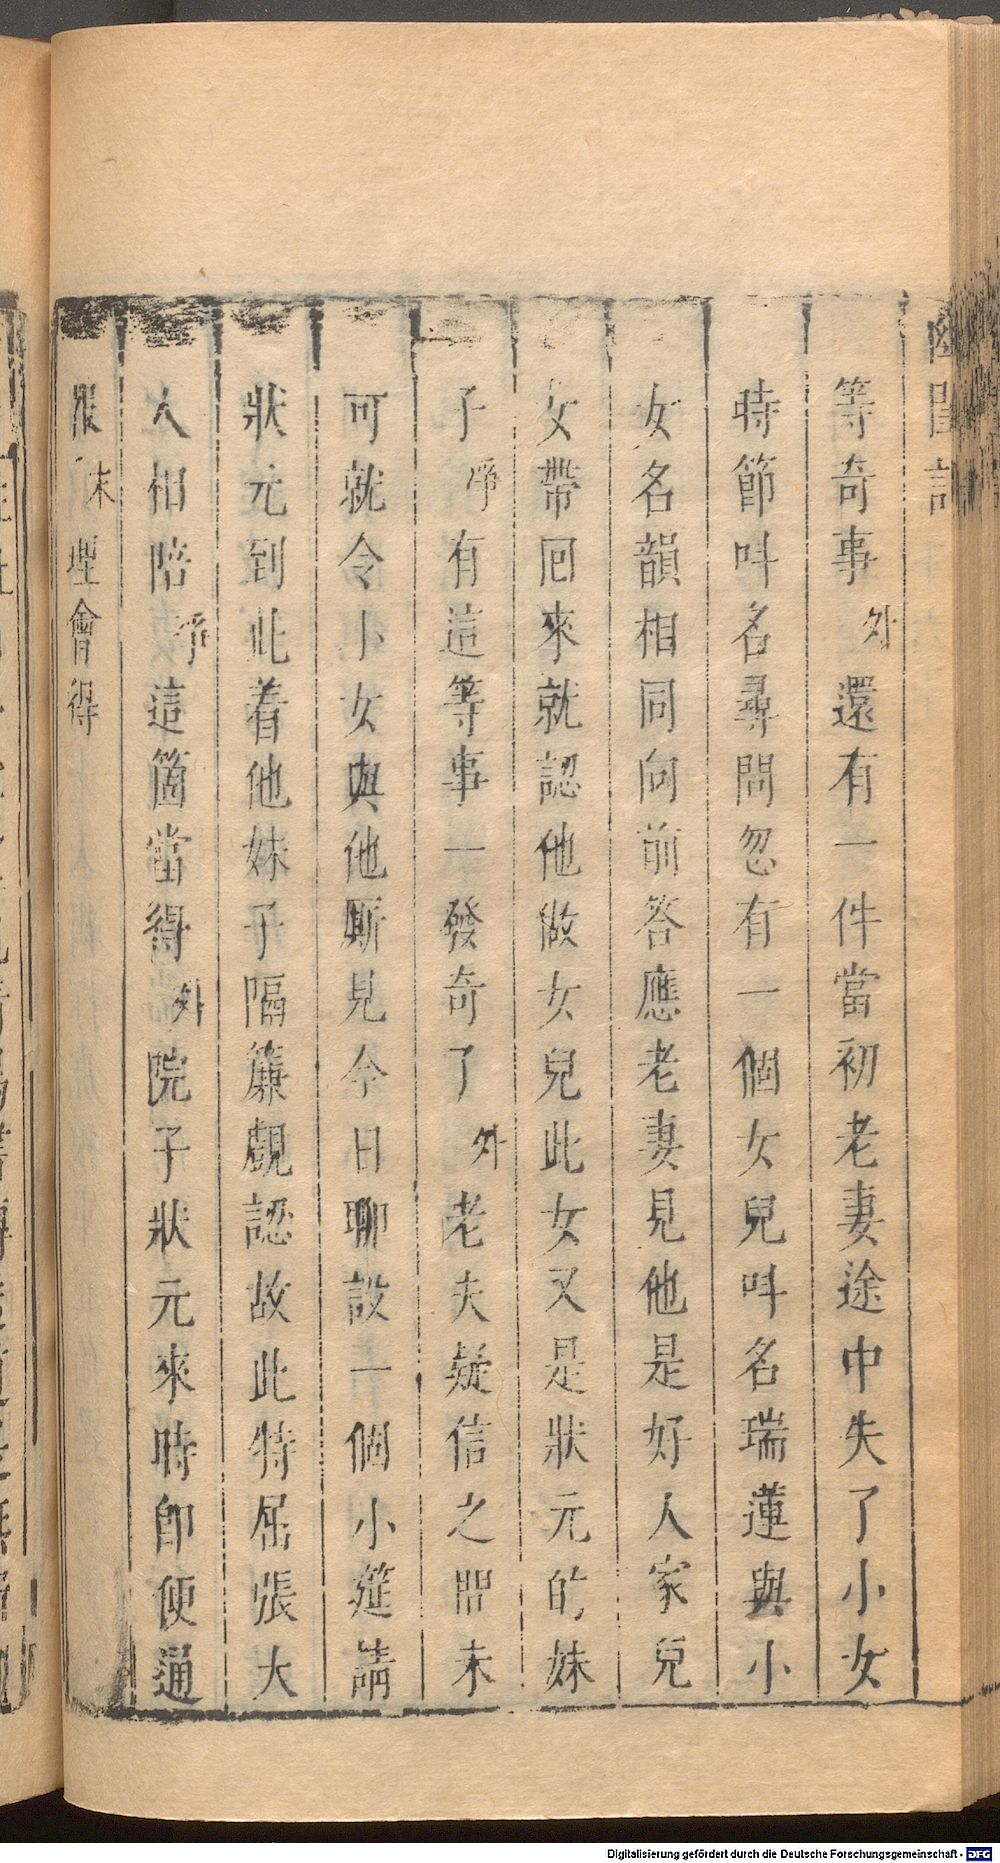 幽閨記
等奇事外還有一件當初老妻途中失了小女
時節呌名尋問忽有一個女兒呌名瑞蓮與小
女名韻相同向前答應老妻見他是好人家兒
女帶囘來就認他做女兒此女又是狀元的妹
子淨有這等事一發奇了外老夫疑信之間未
可就令小女與他厮見今日聊設一個小筵請
狀元到此着他妹子隔簾覷認故此特屈張大
人相陪淨這箇當得外院子狀元來時卽便通
報末理會得
Digitalisierung gefördert durch die Deutsche Forschungsgemeinschaft - DFG